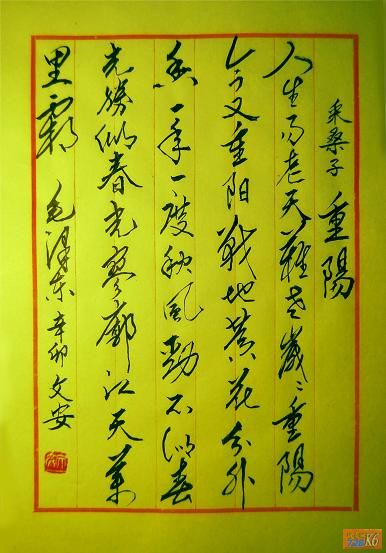 采桑子 重陽
人生易老天難老歲々重陽
今又重阳戰地黄花分外
香一年一度秋風勁不似春
光勝似春光寥廓江天萬
里霜 毛澤东 辛卯 文安
K6